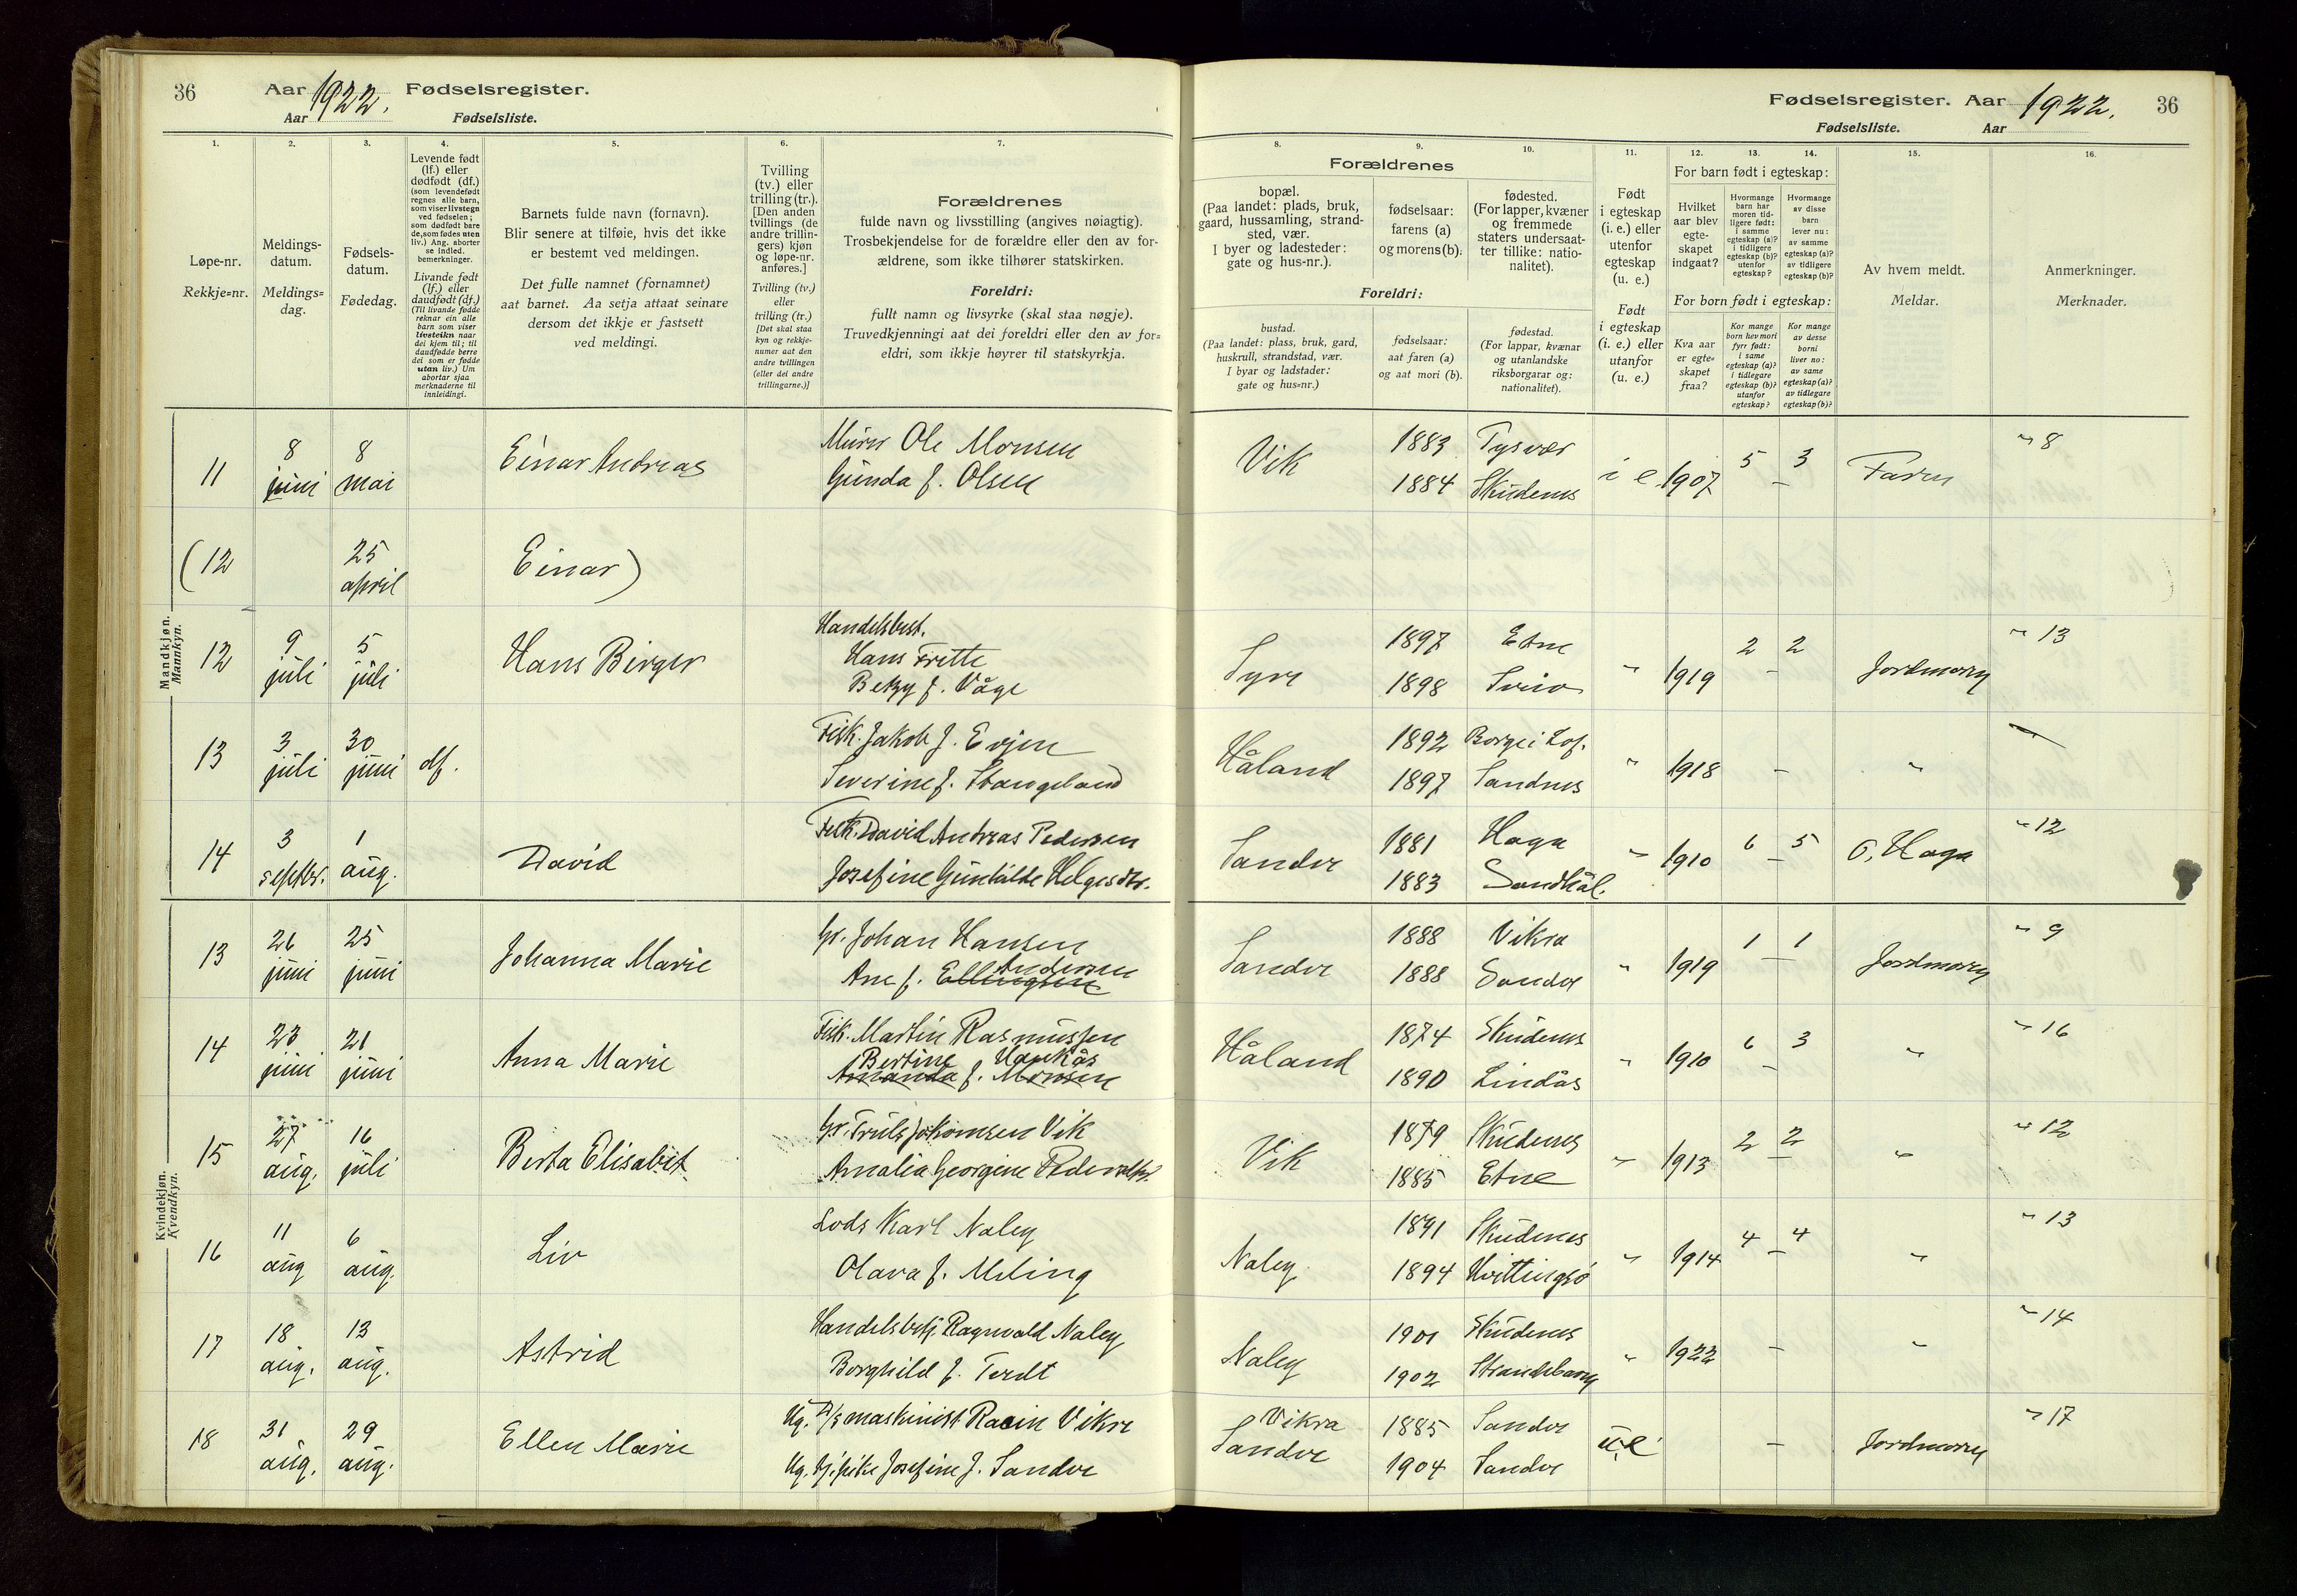 36 Aar 1922. Fødselsregister.
Aar Fødselsliste.
Fødselsregister. Aar 1922. 36
Fødselsliste. Aar
1. 2. 3. 4. 5. 6. 7.
Løpe-nr.
Rekkje=nr.
Meldings-
datum.
Meldings=
dag.
Fødsels-
datum.
Fødedag.
Levende født
(lf.) eller
dødfødt (df.)
(som levendefødt
regnes alle barn,
som viser livstegn
ved fødselen;
som dødfødt bare
de, som fødes uten
liv.) Ang. aborter
se indled.
bemerkninger.
Livande født
(lf.) eller
daudfødt (df.)
(Til livande fødde
reknar ein alle
barn som viser
livsteikn naar
dei kjem til; til
daudfødde berre
dei som er fødde
utan liv.) Um
abortar sjaa
merknaderne til
innleidingi.
Barnets fulde navn (fornavn).
Blir senere at tilføie, hvis det ikke
er bestemt ved meldingen.
Det fulle namnet (fornamnet)
aat barnet. Aa setja attaat seinare
dersom det ikkje er fastsett
ved meldingi.
Tvilling
(tv.) eller
trilling (tr.).
[Den anden
tvillings (de
andre trillin-
gers) kjøn
og løpe-nr.
anføres.]
Tvilling (tv.)
eller
trilling (tr.)
[Det skal staa
kyn og rekkje-
numer aat den
andre tvillingen
(eller dei andre
trillingarne.)]
Forældrenes
fulde navn og livsstilling (angives nøiagtig).
Trosbekjendelse for de forældre eller den av for-
ældrene, som ikke tilhører statskirken.
Foreldri:
fullt namn og livsyrke (skal staa nøgje).
Truvedkjenningi aat dei foreldri eller den av for=
eldri, som ikkje høyrer til statskyrkja.
8. 9. 10. 11. 12. 13. 14. 15. 16.
Forældrenes
bopæl.
(Paa landet: plads, bruk,
gaard, hussamling, strand-
sted, vær.
I byer og ladesteder:
gate og hus-nr.).
fødselsaar:
farens (a)
og morens (b).
fødested.
(For lapper, kvæner
og fremmede
staters undersaat-
ter tillike: natio-
nalitet).
Foreldri:
bustad.
(Paa landet: plass, bruk, gard,
huskrull, strandstad, vær.
I byar og ladstader:
gate og hus=nr.)
fødselsaar:
aat faren (a)
og aat mori (b).
fødestad.
(For lappar, kvænar
og utanlandske
riksborgarar og:
nationalitet).
Født
i egteskap
(i. e.) eller
utenfor
egteskap
(u. e.)
Født
i egteskap
(i. e.) eller
utanfor
(u. e.)
For barn født i egteskap:
Hvilket
aar blev
egte-
skapet
indgaat?
Hvormange
barn har
moren tid-
ligere født:
i samme
egteskap (a)?
i tidligere
egteskap (b)?
utenfor
egteskap?
Hvormange
av disse
barn
lever nu:
av samme
egteskap (a)?
av tidligere
egteskap (b)?
For born født i egteskap:
Kva aar
er egte=
skapet
fraa?
Kor mange
born hev mori
fyrr født:
i same
egteskap (a)?
i tidlegare
egteskap (b)?
utanfor
egteskap?
Kor mange
av desse
borni
liver no:
av same
egteskap (a)?
av tidlegare
egteskap (b)?
Av hvem meldt.
Meldar.
Anmerkninger.
Merknader.
Mandkjøn.
Mannkyn.
11 8 juni 8 mai Einar Andreas Murer Ole Monsen Vik 1883 Tysvær i e. 1907 5 – 3 Faren " 8
Gunda f. Olsen 1884 Skudenes
(12 25 april Einar)
12 9 juli 5 juli Hans Birger Handelsbest.
Hans Fritte Syre 1897 Etne " 1919 2 – 2 Jordmory " 13
Betzy f. Våge 1898 Sveio
13 3 juli 30 juni df. Fisk. Jakob J. Evjen Håland 1892 Borge i Lof. " 1918 – "
Severine f. Stangeland 1897 Sandnes
14 3 septbr. 1 aug. David Fisk. David Andreas Pedersen Sandve 1881 Haga " 1910 6 – 5 O. Haga " 12
Josefine Gunhilde Helgesdtr. 1883 Sandhål.
Kvindekjøn.
Kvendkyn.
13 26 juni 25 juni Johanna Marie Gr. Johan Hansen Sandve 1888 Vikra " 1919 1 – 1 Jordmory " 9
Andersen
Ane f. Ellingsen 1888 Sandve
14 23 juni 21 juni Anna Marie Fisk. Martin Rasmussen Håland 1874 Skudenes " 1910 6 – 3 " " 16
Bertine Haukås
Amanda f. Monsen 1890 Lindås
15 27 aug. 16 juli Berta Elisabet Gr. Truls Jakomsen Vik Vik 1879 Skudenes " 1913 2 – 2 " " 12
Amalia Georgine 1885 Etne
16 11 aug 6 aug. Liv Lods Karl Naley Naley 1891 Skudenes " 1914 4 – 4 " " 13
Olava f. Meling 1894 Hvittingsø
17 18 aug. 13 aug. Astrid Handelsbetj. Ragnvald Naley Naley 1901 Skudenes " 1922 – " " 14
Borghild f. Tordt 1902 Strandebarm
18 31 aug. 29 aug. Ellen Marie Ug. D/s maskinist Racin Vikre Vikra 1885 Sandve u.e. – Jordmory " 17
Ug. tj.pike Josefine J. Sandve Sandve 1904 Sandve